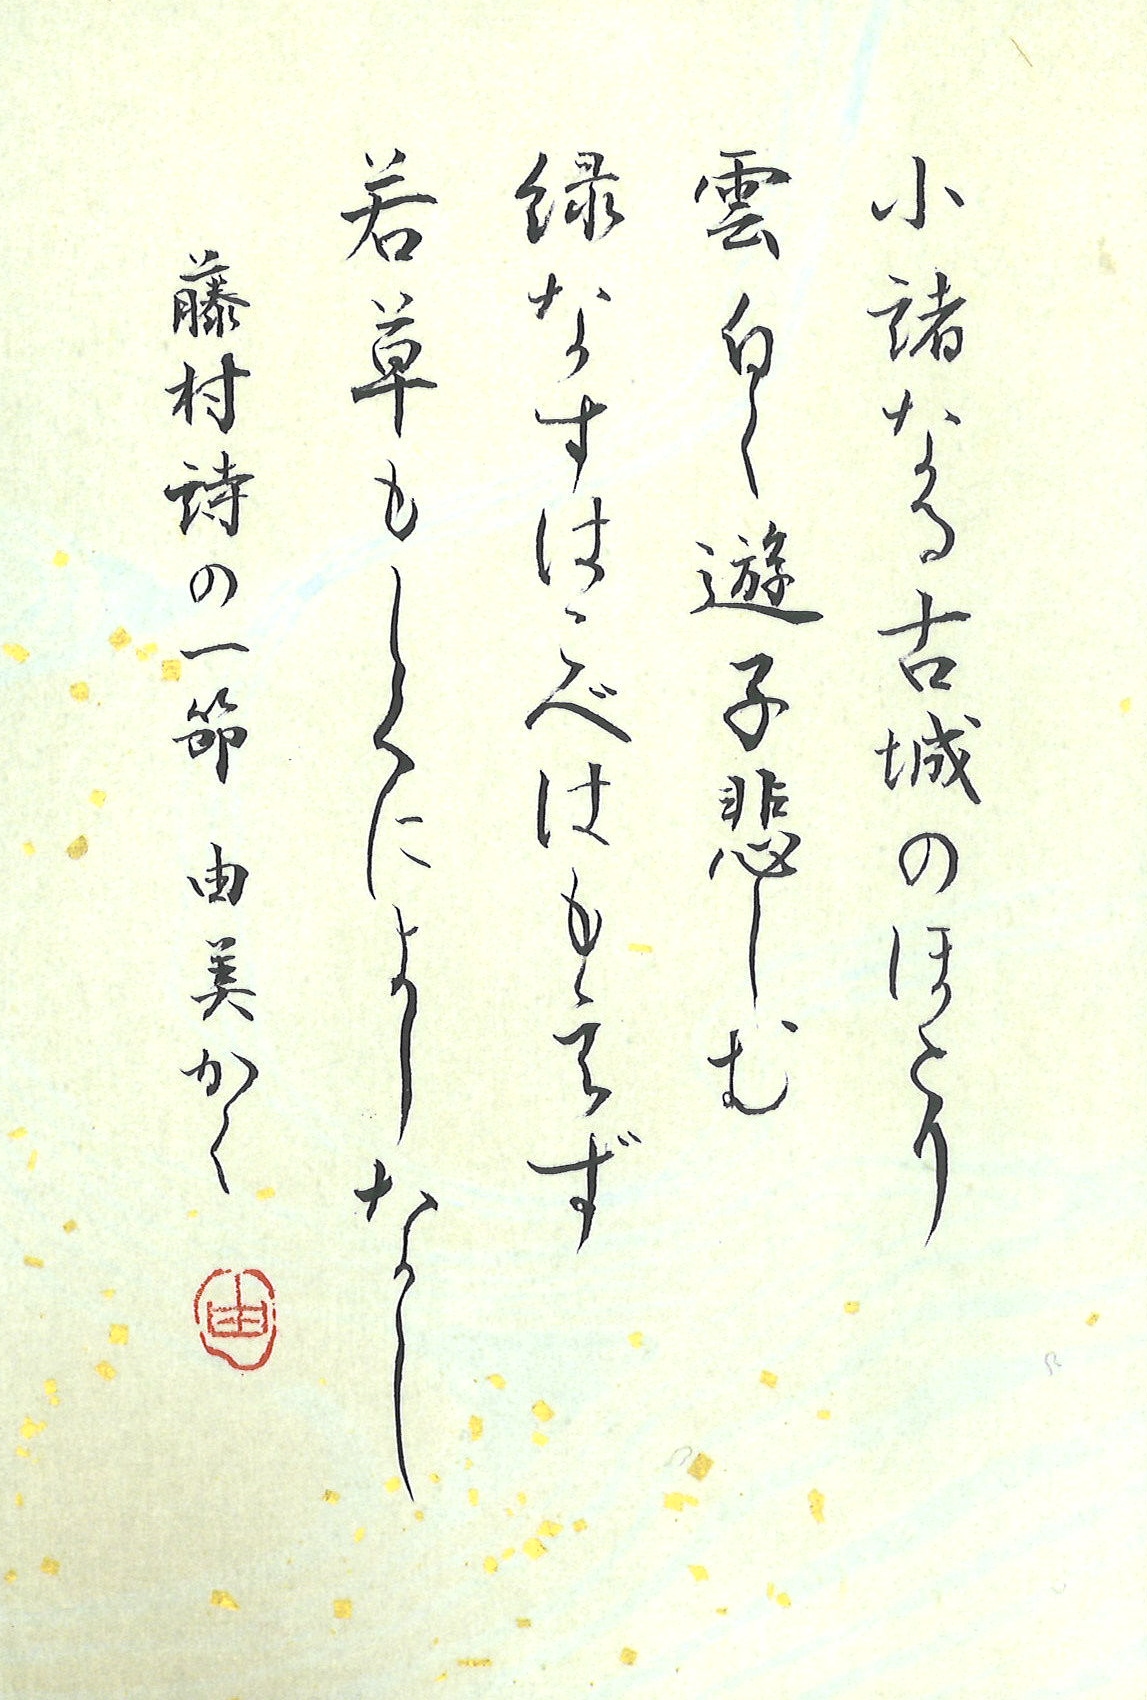 小諸なる古城のほとり
雲白く遊子悲しむ
緑なすはこべはもえず
若草もしくによしなし
藤村詩の一節 由美かく
由